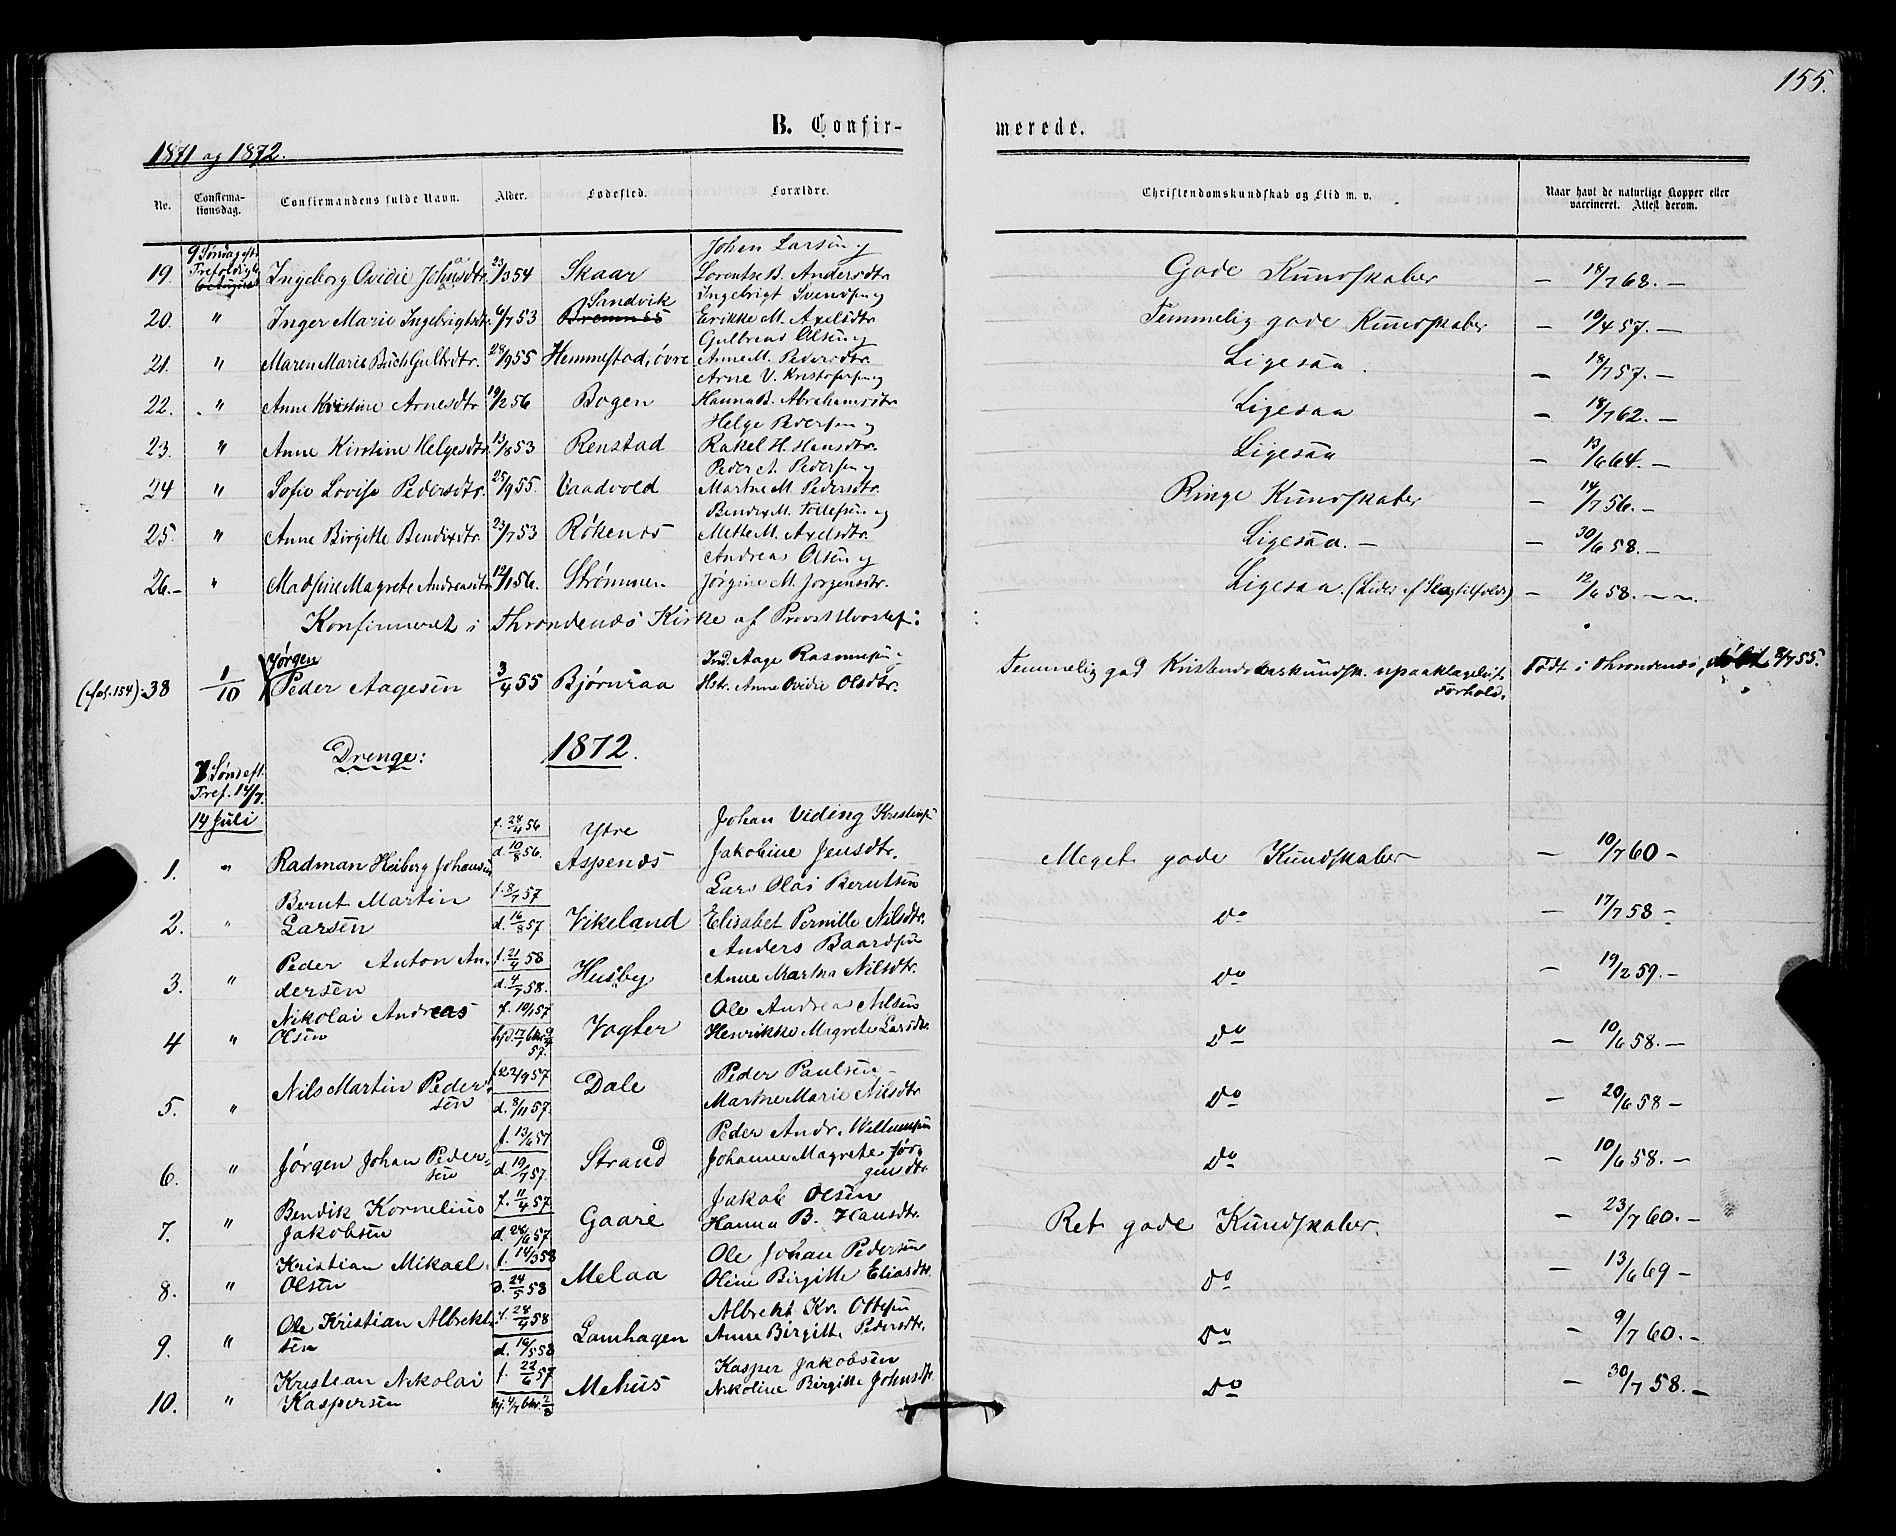 155.
B. Confirmerede.
1871 og 1872.
No. Confirmationsdag. Confirmandens fulde Navn. Alder. Fødested. Forældre. Christendomskundskab og Flid m. v. Naar havt de naturlige Kopper eller vaccineret. Attest derom.
9 Søndag eft. Johan Larsen og
19. Trefoldigh. Ingeborg Ovidie Johansdtr. 23/3 54 Skaar Lorentse B. Andersdtr. Gode Kundskaber — 18/7 68. —
Sandvik Ingebrigt Svendsen og
20. " Inger Marie Ingebrigtsdtr. 6/7 53 Bremnes Erikke M. Axelsdtr. Temmelig gode Kundskaber — 19/4 57. —
Gulbrand Olsen og
21. " Maren Marie Buch Gulbrdtr. 28/9 55 Hemmestad, övre Anne M. Pedersdtr. Ligesaa. — 18/7 57. —
Arne V. Kristofersen og
22. " Anne Kristine Arnesdtr. 19/2 56 Bogen Hanna B. Abrahamsdtr. Ligesaa — 18/7 62. —
Helge Pedersen og
23. " Anne Kirstine Helgesdtr. 13/8 53 Renstad Rakel H. Hansdtr. Ligesaa — 13/6 64. —
Peder A. Pedersen og
24 " Sofie Lovise Pedersdtr. 25/9 55. Vaadvold Martne M. Pedersdtr. Ringe Kundskaber — 14/7 56. —
Bendix M. Tollefsen og
25. " Anne Birgitte Bendixdtr. 23/7 53 Rökenes Mette M. Axelsdtr. Ligesaa. — — 30/6 58. —
Andreas Olsen og
26. — " Madsine Magrete Andreasdtr. 12/1 56. Strømmen Jørgine M. Jørgensdtr. Ligesaa. (Lider af — 12/6 58. —
Konfirmeret i Throndenæs Kirke af Provst
Jørgen Ind. Aage Rasmussen
(fol. 154) 38 1/10 Peder Aagesen 3/4 55 Bjørnraa Hstr. Anne Ovidie Olsdtr. Temmelig god Kristendomskundsk. upaaklageligt Forhold. Født i Throndenæs, døbt 8/7 55.
Drenge: 1872.
7 Sønd eft.
Tref. 14/7.
14 Juli
f. 24/4 56 Ytre Johan Viding Kristensen
1. " Radman Heiberg Johansen d. 10/8 56. Aspenes Jakobine Jensdtr. Meget gode Kundskaber — 10/7 60 —
Bernt Martin f. 8/7 57 Lars Olai Berntsen
2. " Larsen d. 16/8 57 Vikeland Elisabet Pernille Nilsdtr. do — 17/7 58 —
Peder Anton An- f. 21/4 58 Anders Baardsen
3. " dersen d. 4/7 58. Husby Anne Martna Nilsdtr. do — 19/2 59. —
Nikolai Andreas f. 10/1 57 Ole Andreas Nilsen
4 " Olsen 57. Vogter Henrikke Magrete Larsdtr. do — 10/6 58. —
Nils Martin Peder- f. 22/9 57 Peder Paulsen
5. " sen d. 8/11 57. Dale Martne Marie Nilsdtr. do — 20/6 58 —
f. 13/6 57 Peder Andr. Willumsen
6. " Jørgen Johan Peder- sen d. 19/7 57. Strand Johanne Magrete Jør- gensdtr. do — 10/6 58. —
Bendik Kornelius f. 11/4 57. Jakob Olsen
7. " Jakobsen d. 24/6 57 Gaare Hanna B. Hansdtr. Ret gode Kundskaber. — 23/7 60. —
Kristian Mikael f. 14/3 58 Ole Johan Pedersen
8. " Olsen d. 24/5 58 Melaa Oline Birgitte Eliasdtr. do — 13/6 69 —
Ole Kristian Albrekt- f. 28/4 58 Albrekt Kr. Ottesen
9. " sen d. 19/5 58 Lamhagen Anne Birgitte Pedersdtr. do — 9/7 60. —
Kristian Nikolai f. 22/6 57 Kasper Jakobsen
10. " Kaspersen Mehus Nikoline Birgitte Johnsdtr. do — 30/7 58. —